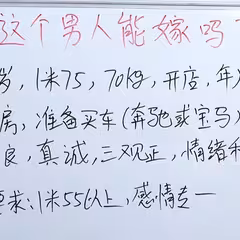 这个男人能嫁吗
岁,1米75,70kg,开店,年
房,准备买车(奔驰或宝马)
良,真诚,三观正,情绪
要求:1米55以上,感情专一